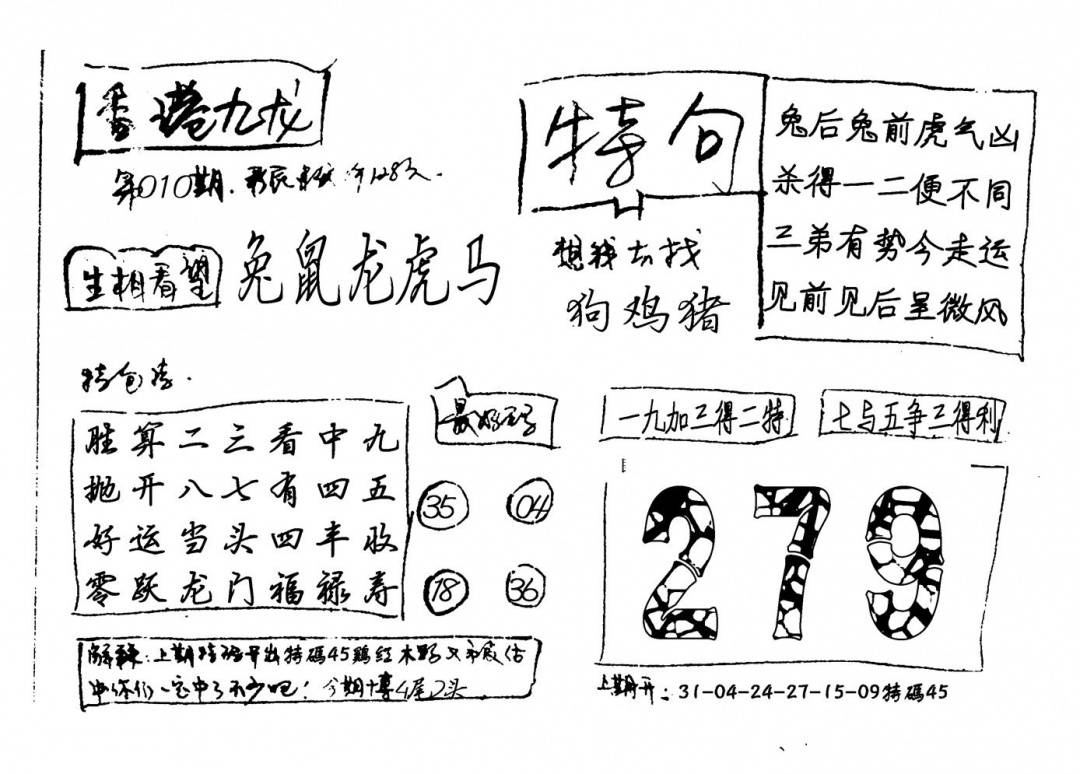 香港九龙
第010期
生相看望
兔鼠龙虎马
特句
想我去找
狗鸡猪
兔后兔前虎气凶
杀得一二便不同
三弟有势今走运
见前见后呈微风
胜算二三看中九
抛开八七有四五
好运当头四丰收
零跃龙门福禄寿
35 04
18 36
一九加三得二特
七与五争三得利
279
解 : 上期特 开出特碼45鷄红木野
中你们一定中了不少吧! 今期博4尾2头
上期开: 31-04-24-27-15-09特碼45